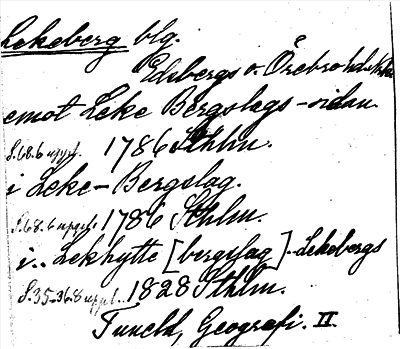 Lekeberg blg.
Edsbergs o. Örebro hd
emot Leke Bergslags-sidan.
S.68. 6 uppl. 1786 Sthlm.
i Leke-Bergslag.
S.68. 6 uppl. 1786 Sthlm.
i.. Lekhytte [bergslag]-Lekebergs
S.35-36. 8 uppl.. 1828 Sthlm.
Tuneld, Geografi. II.